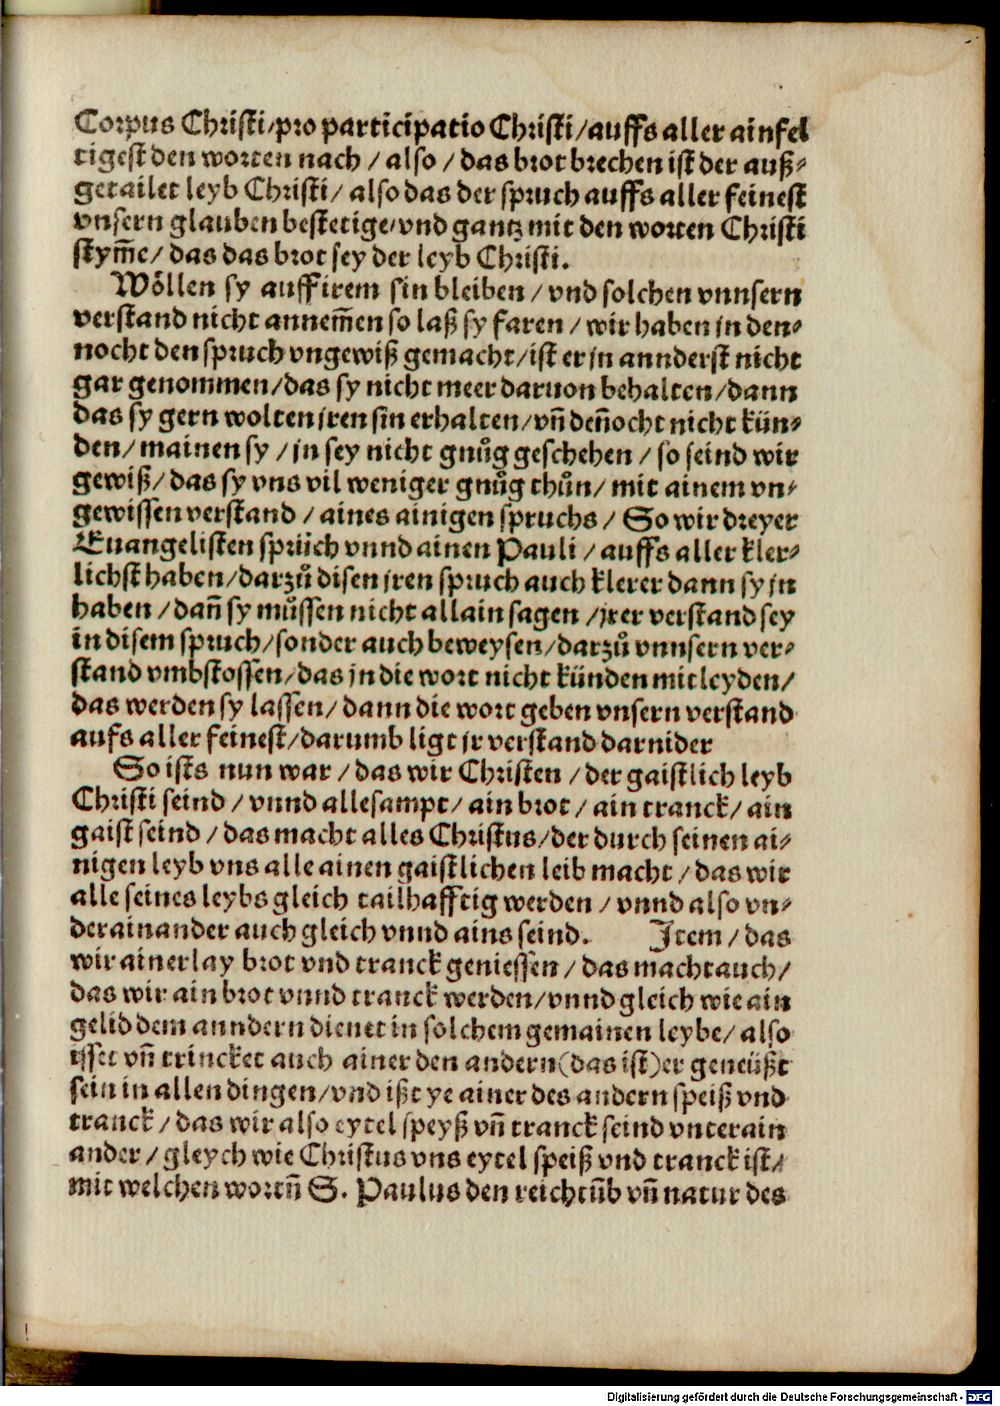 Corpus Christi/pro participatio Christi/auffs aller ainfel
tigest den worten nach / also / das brot brechen ist der auß-
getailet leyb Christi/ also das der spruch auffs aller feinest
vnsern glauben bestetige/vnd gantz mit den worten Christi
stym̄e/ das das brot sey der leyb Christi.
Wöllen sy auff irem sin bleiben / vnd solchen vnnsern
verstand nicht annem̄en so laß sy faren / wir haben jn den-
nocht den spruch vngewiß gemacht/ist er jn annderst nicht
gar genommen/das sy nicht meer daruon behalten/dann
das sy gern wolten jren sin erhalten/vn̄ den̄ocht nicht kün-
den/ mainen sy / jn sey nicht gnůg geschehen / so seind wir
gewiß/ das sy vns vil weniger gnůg thůn/ mit ainem vn-
gewissen verstand / aines ainigen spruchs / So wir dreyer
Euangelisten sprüch vnnd ainen Pauli / auffs aller kler-
lichst haben/darzů disen jren spruch auch klerer dann sy jn
haben / dan̄ sy můssen nicht allain sagen / jrer verstand sey
in disem spruch/sonder auch beweysen/darzů vnnsern ver-
stand vmbstossen/das jn die wort nicht künden mit leyden/
das werden sy lassen/ dann die wort geben vnsern verstand
aufs aller feinest/darumb ligt jr verstand darnider
So ists nun war / das wir Christen / der gaistlich leyb
Christi seind / vnnd allesampt/ ain brot / ain tranck/ ain
gaist seind / das macht alles Christus/der durch seinen ai-
nigen leyb vns alle ainen gaistlichen leib macht / das wir
alle seines leybs gleich tailhafftig werden / vnnd also vn-
derainander auch gleich vnnd ains seind. Item / das
wir ainerlay brot vnd tranck geniessen / das macht auch/
das wir ain brot vnnd tranck werden/vnnd gleich wie ain
gelid dem anndern dienet in solchem gemainen leybe/ also
isset vn̄ trincket auch ainer den andern(das ist)er geneüßt
sein in allen dingen/vnd ißt ye ainer des andern speiß vnd
tranck / das wir also eytel speyß vn̄ tranck seind vnterain
ander / gleych wie Christus vns eytel speiß vnd tranck ist/
mit welchen wortn̄ S. Paulus den reichtūb vn̄ natur des
Digitalisierung gefördert durch die Deutsche Forschungsgemeinschaft - DFG